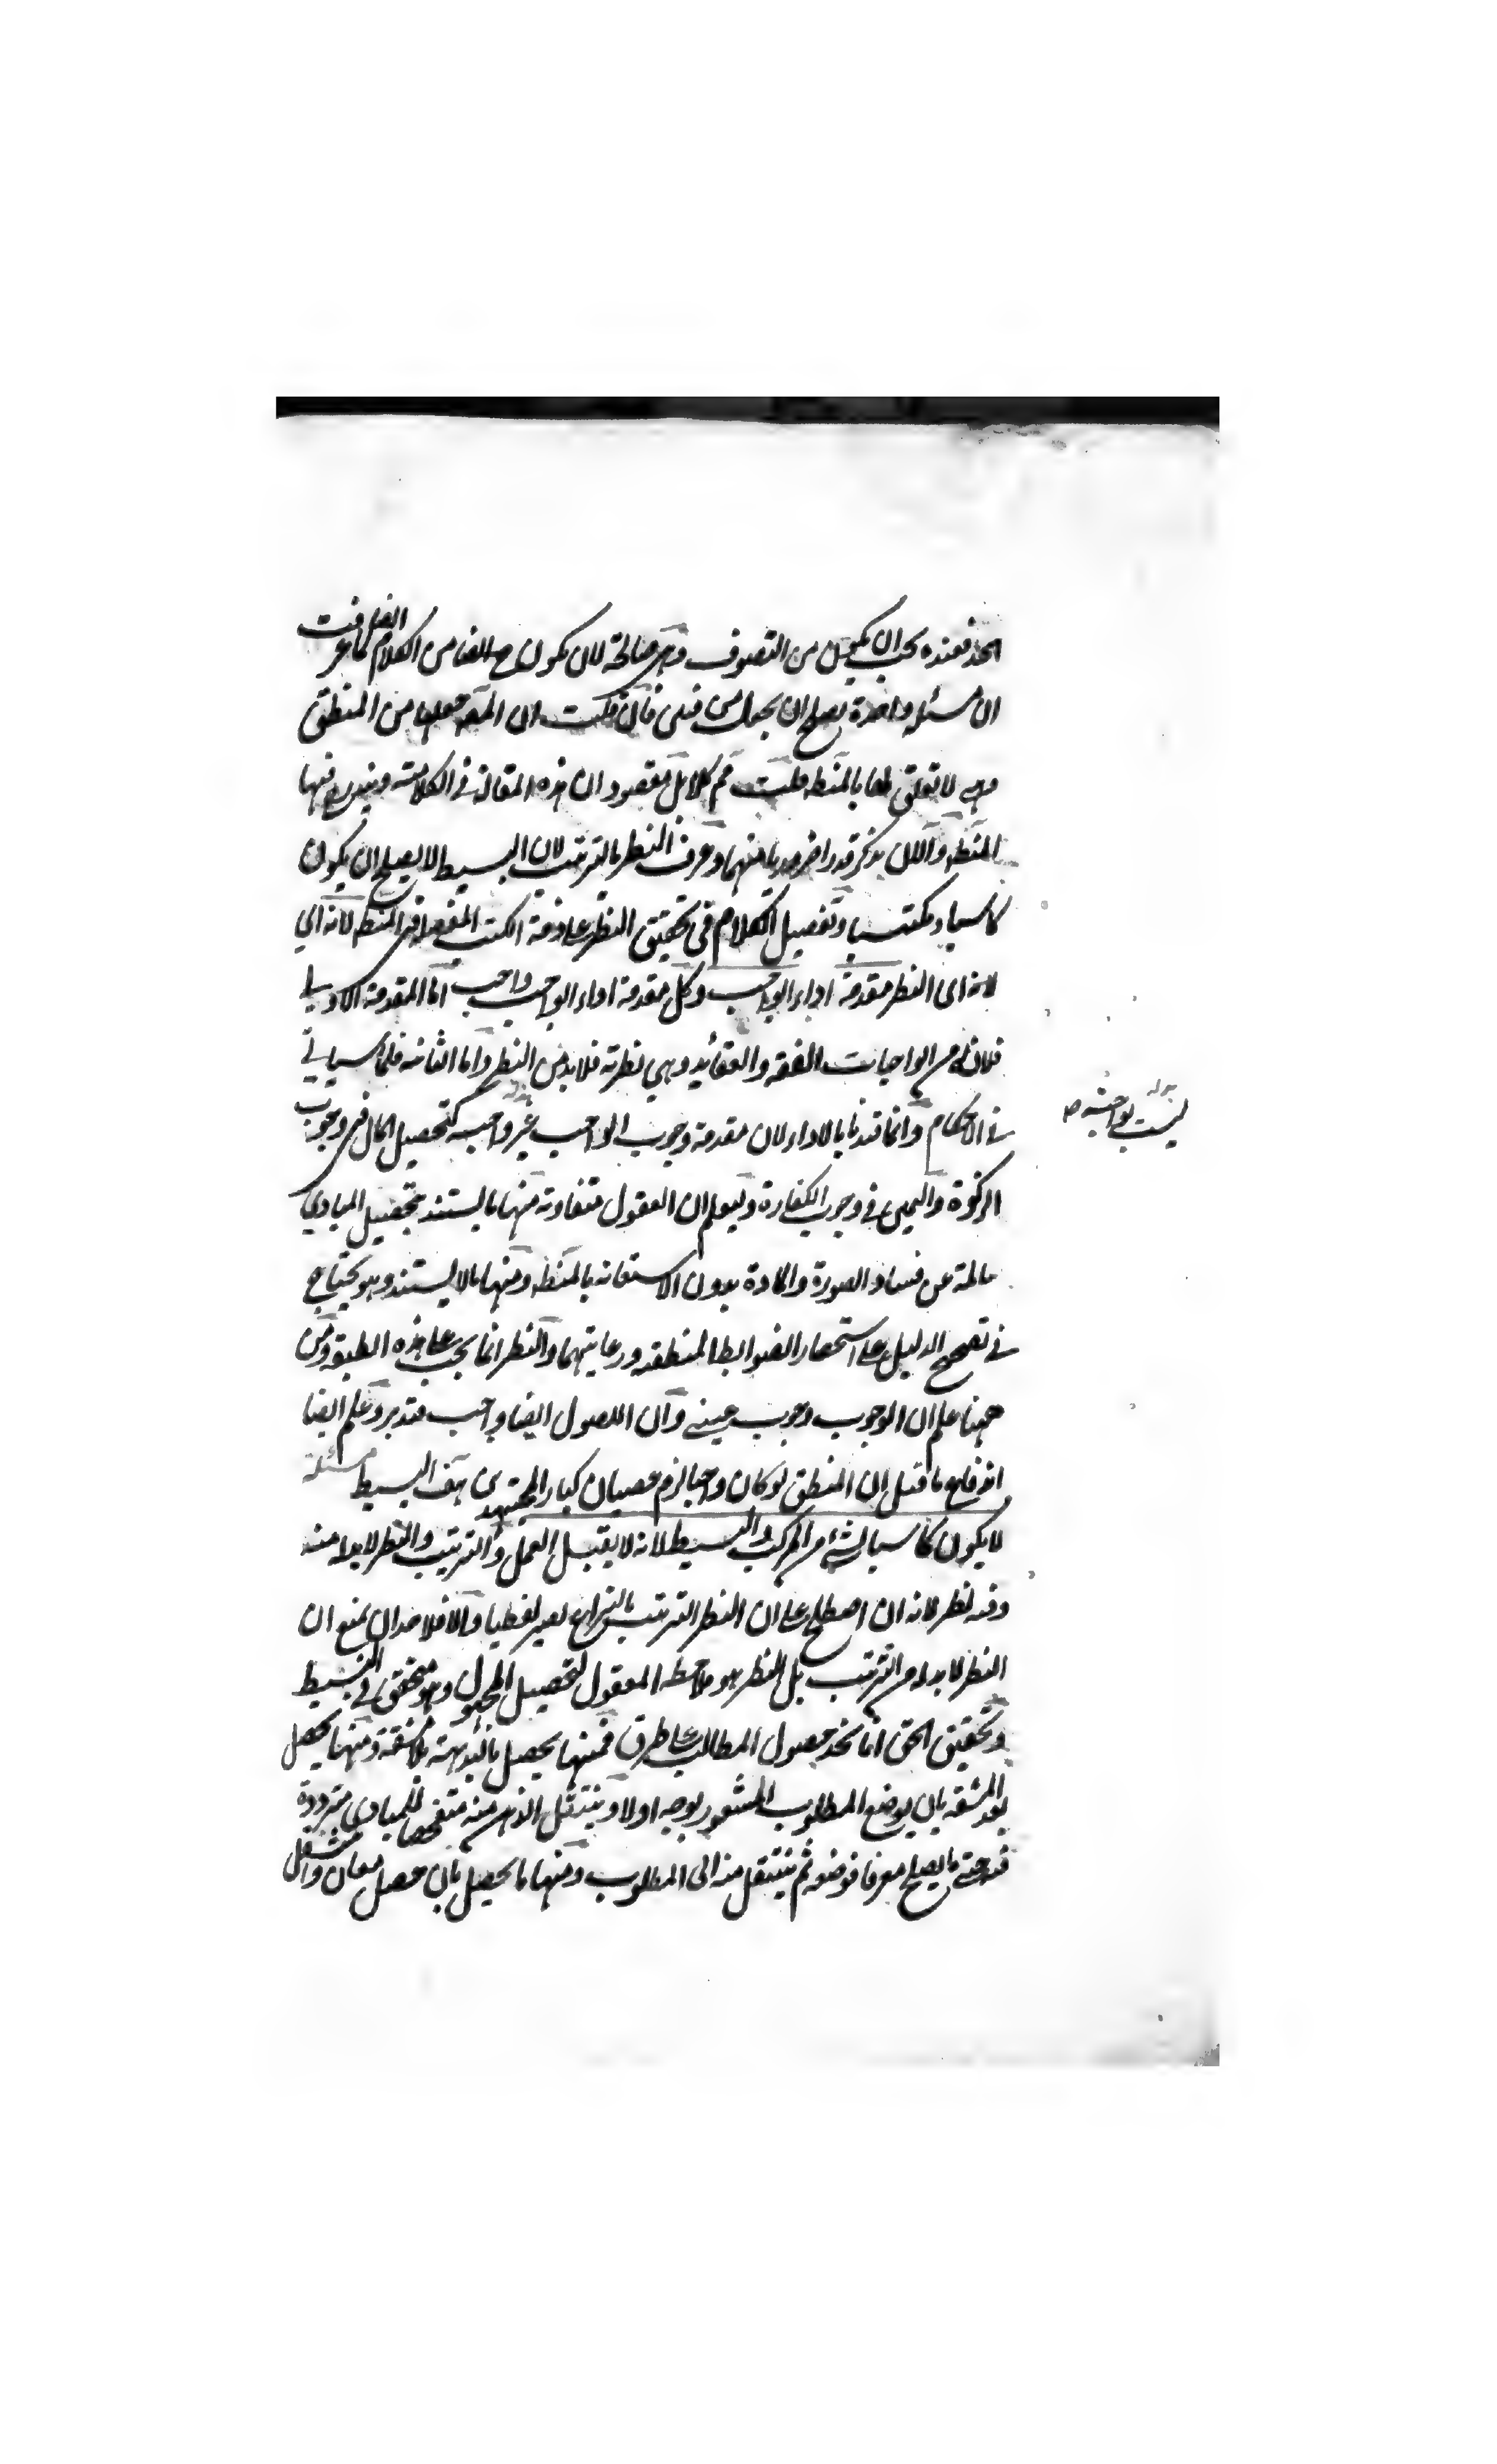 الحد فعنده يجب ان يكون من التصوف وهي صالحة لان يكون ح ايضا من الكلام ايضا كما عرفت
ان مسئلة واحدة يصلح ان يجعل من فنين فان قلت ان المص جعلها من المنطق
وهي لا تعلق لها بالمنطق قلت ثم كلا بل مقصوده ان هذه المقالة في الكلامية ويندرج فيها
المنطق والان يذكر قدرا ضروريا منهما وعرف النظر بالترتيب لان البسيط لا يصلح ان يكون
كاسبا ومكتسبا وتفصيل الكلام في تحقيق النظر على ذمة الكتب المفصلة في المنطق لانه اي
لانه اي النظر مقدمة اداء الواجب وكل مقدمة اداء الواجب واجب اما المقدمة الاولى
فلانه من الواجبات الفقه والعقائد وهي نظرية فلا بد من النظر واما الثانية فلما سيأتي
في الاحكام وانما قيدنا بالاداء لان مقدمة وجوب الواجب غير واجبة كتحصيل المال في وجوب
ليست بواجبة ص
الزكوة واليمين في وجوب الكفارة وليعلم ان العقول متفاوتة منها ما يستند بتحصيل المبادي
سالمة عن فساد الصورة والمادة بدون الاستعانة بالمنطق ومنها ما لا يستند وهو يحتاج
في تصحيح الدليل على استحضار الضوابط المنطقية ورعايتهما والنظر انما يجب على هذه الطبقة ومن
ههنا علم ان الوجوب وجوب عيني وان الاصول ايضا واجب فتدبر وعلم ايضا
اندفاع ما قيل ان المنطق لو كان واجبا لزم عصيان كبار المجتهدين هف البسيط مسئلة
لا يكون كاسبا لشئ من المركب والبسيط لانه لا يقبل العمل والترتيب والنظر لا بد له منه
وفيه نظر لانه ان اصطلح على ان النظر الترتيب فالنزاع يصير لفظيا والا فلاحد ان يمنع ان
النظر لا بد له من الترتيب بل النظر هو ملاحظة المعقول لتحصيل المجهول وهو متحقق في البسيط
وتحقيق الحق انا نجد حصول المطالب على طرق فمنها يحصل بالبديهة بلا مشقة ومنها يحصل
بعد المشقة بان يوضع المطلوب المشعور بوجه اولا وينتقل الذهن منه متفحصا للمبادي مترددة
فيه حتى ما يصلح معرفا فوضعه ثم ينتقل منه الى المطلوب ومنها ما يحصل بان حصل معان وانتقل